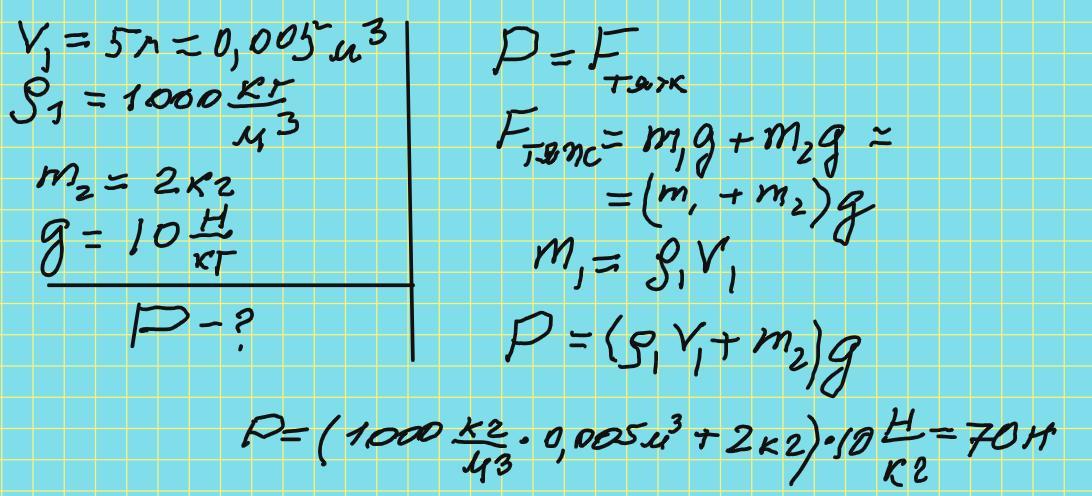 V₁ = 5л = 0,005 м³
ρ₁ = 1000 кг/м³
m₂ = 2кг
g = 10 Н/кг
P - ?
P = Fтяж
Fтяж = m₁g + m₂g =
= (m₁ + m₂)g
m₁ = ρ₁V₁
P = (ρ₁V₁ + m₂)g
P = (1000 кг/м³ · 0,005м³ + 2кг)·10 Н/кг = 70Н